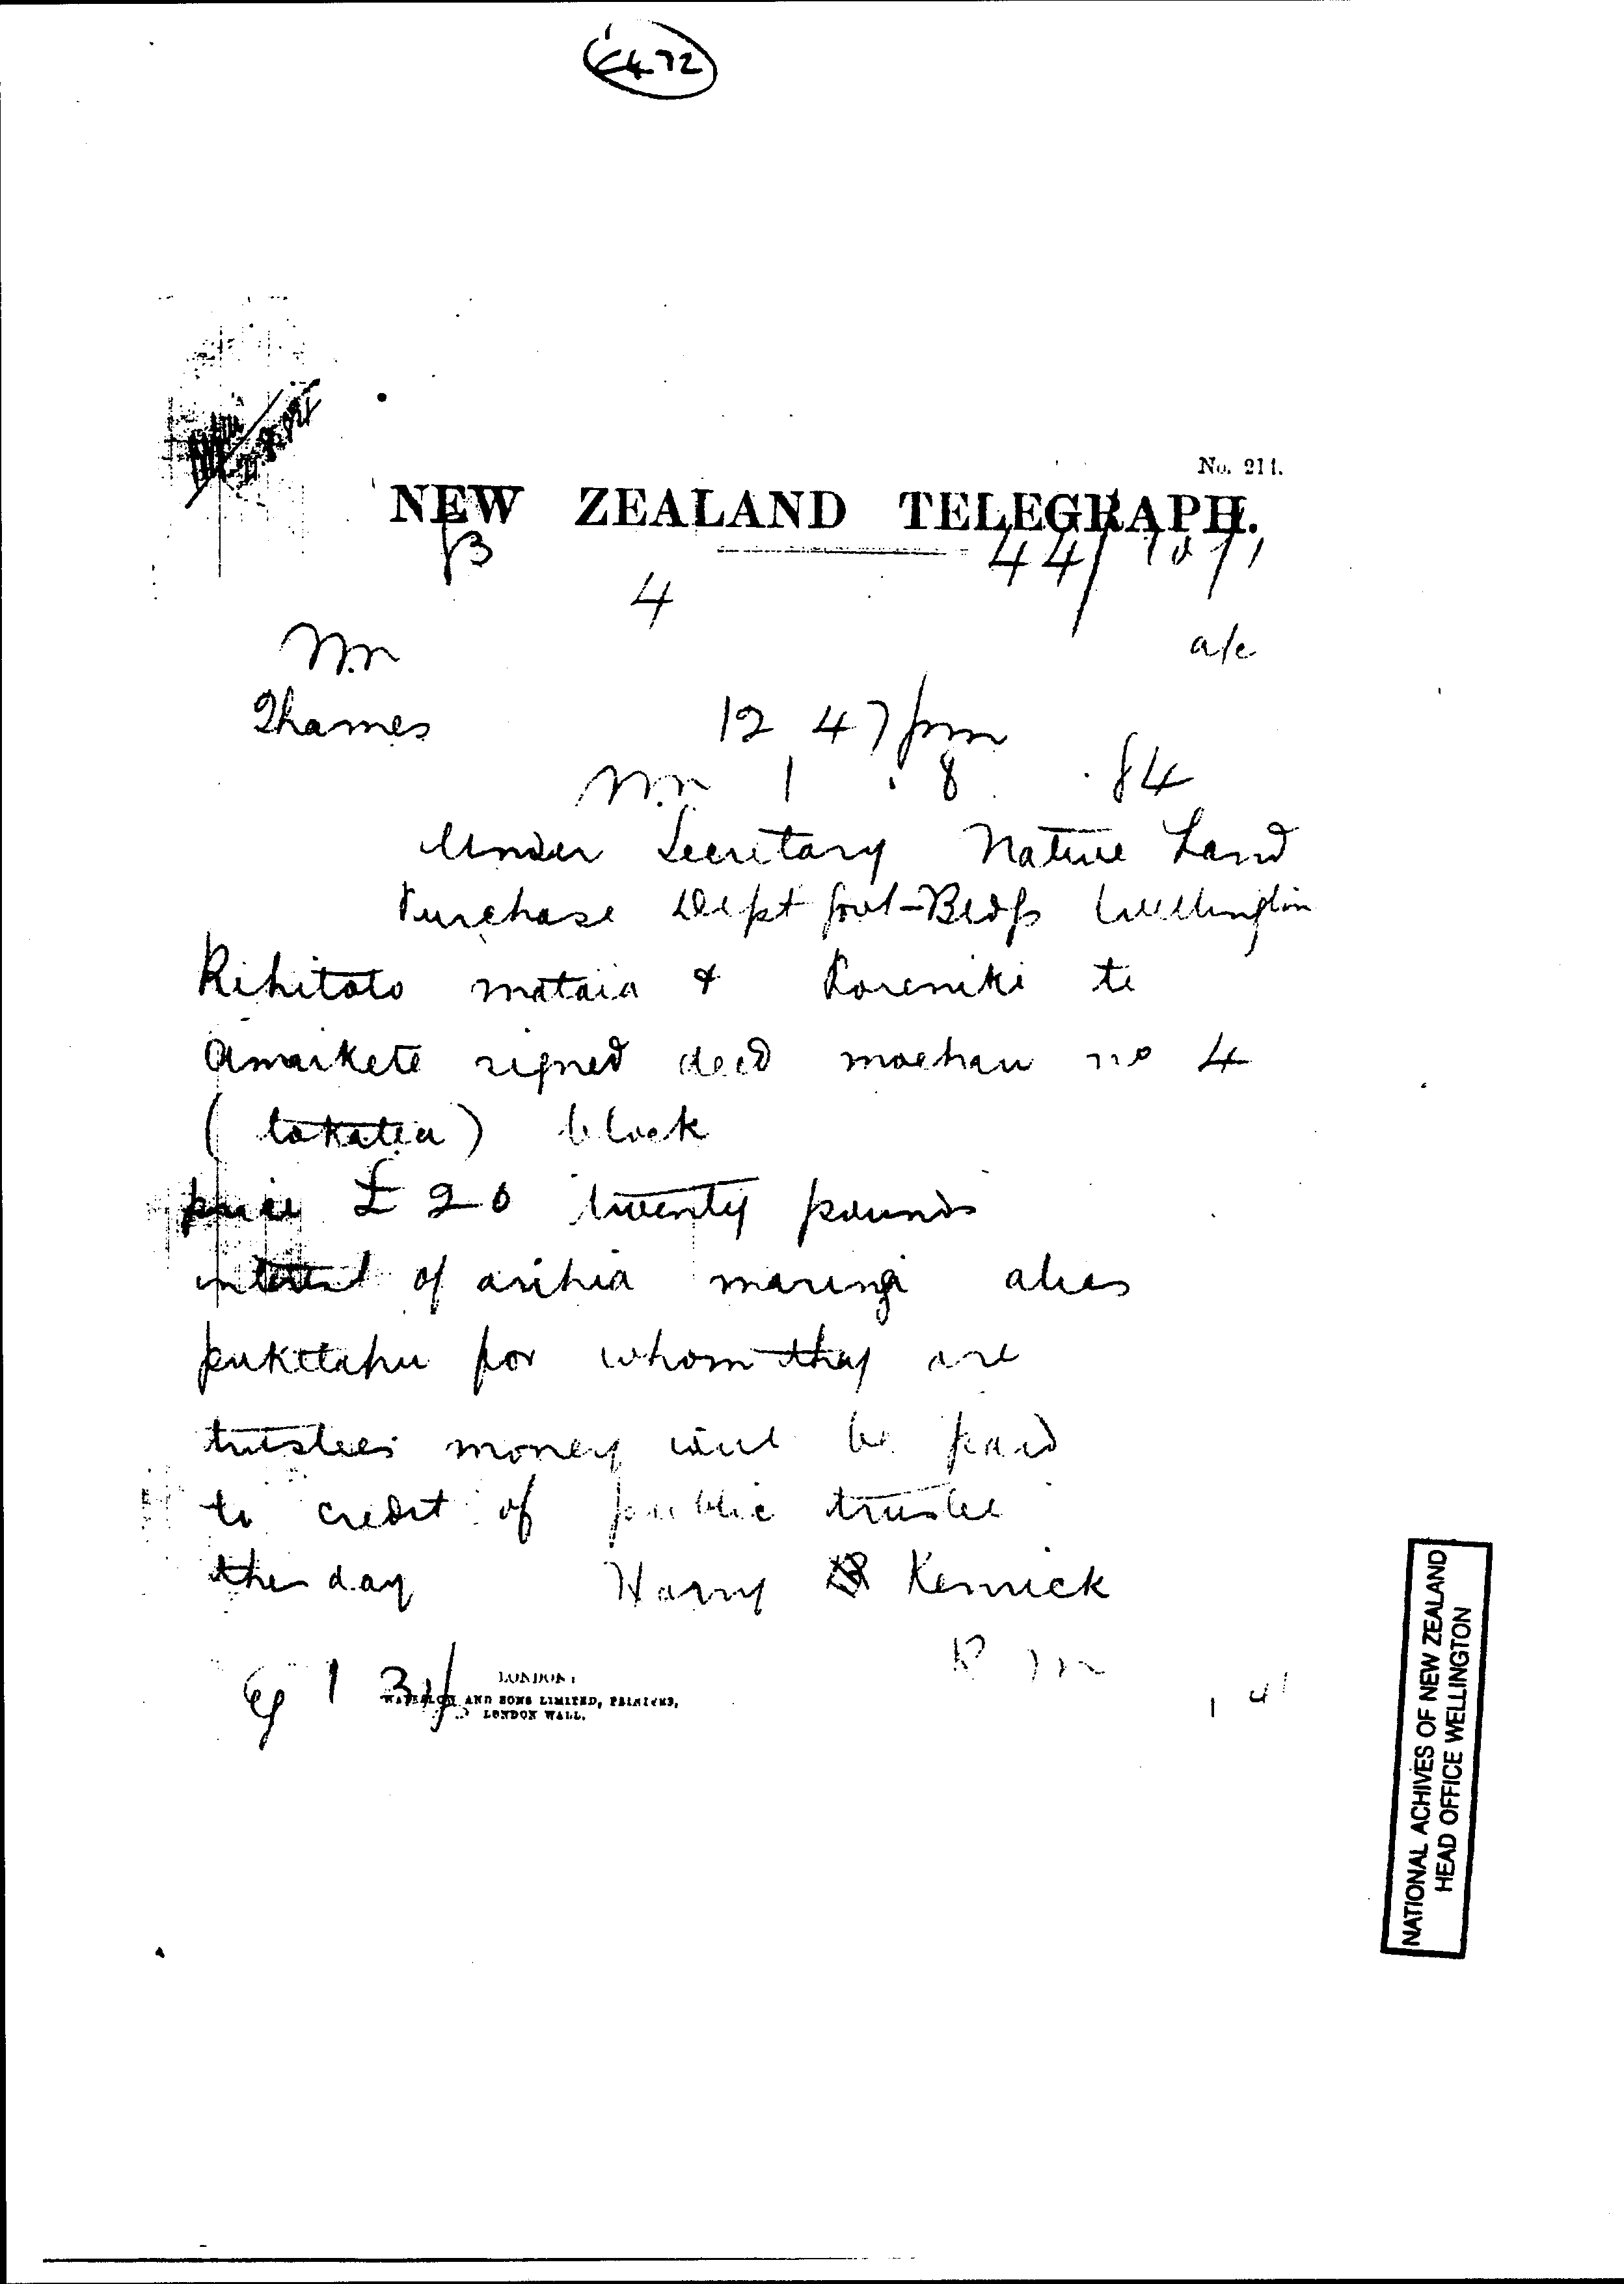 No. 211.
NEW ZEALAND TELEGRAPH.
4
Thames 12 47 pm
1 . 8 . 84
Under Secretary Native Land
Purchase Dept Govt Bldgs Wellington
Rihitoto mataia & Koreniki te
Amarkete signed deed moehau no 4
(tokatea) block
price £20 twenty pounds
interest of arihia maringi alias
puketapu for whom they are
trustees money will be paid
to credit of public trustee
this day Harry Kenrick
R M
LONDON:
WATERLOW AND SONS LIMITED, PRINTERS,
LONDON WALL.
NATIONAL ACHIVES OF NEW ZEALAND
HEAD OFFICE WELLINGTON